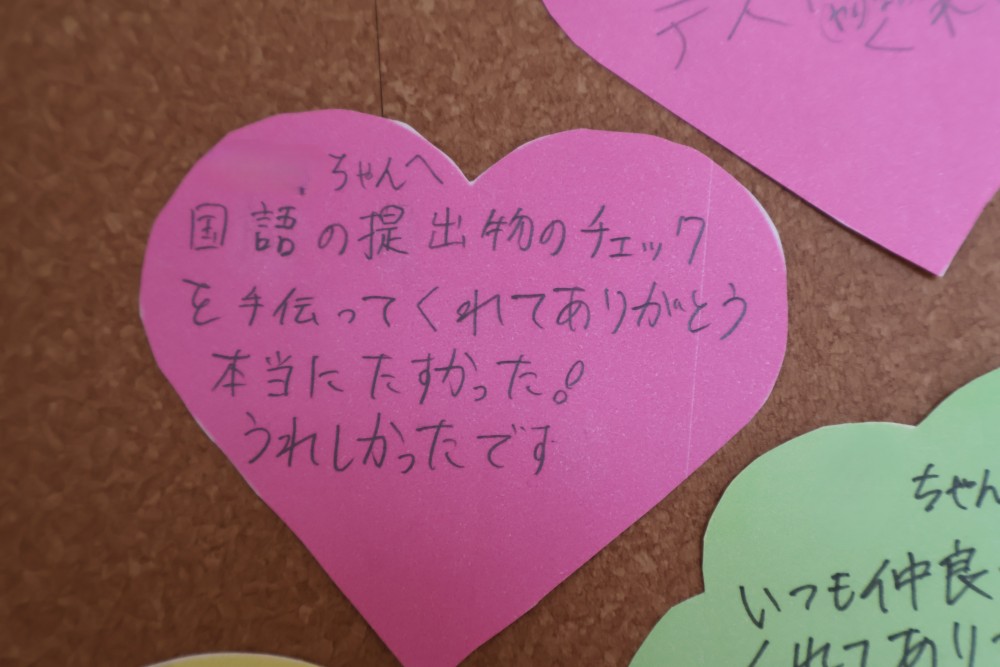 ちゃんへ
国語の提出物のチェック
を手伝ってくれてありがとう
本当にたすかった!
うれしかったです
ちゃん
いつも仲良
くれてあり